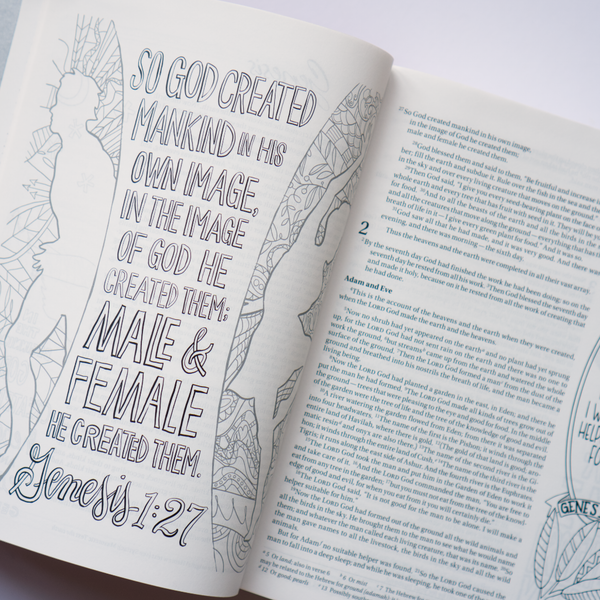 SO GOD CREATED
MANKIND IN HIS
OWN IMAGE,
IN THE IMAGE
OF GOD HE
CREATED THEM;
MALE &
FEMALE
HE CREATED THEM.
Genesis 1:27
27 So God created mankind in his own image,
in the image of God he created them;
male and female he created them.
28 God blessed them and said to them, "Be fruitful and increase
ber; fill the earth and subdue it. Rule over the fish in the sea and
in the sky and over every living creature that moves on the ground."
29 Then God said, "I give you every seed-bearing plant on the face
whole earth and every tree that has fruit with seed in it. They will be
for food. 30 And to all the beasts of the earth and all the birds in the
and all the creatures that move along the ground — everything that ha
breath of life in it — I give every green plant for food." And it was so.
31 God saw all that he had made, and it was very good. And there was
evening, and there was morning — the sixth day.
2 Thus the heavens and the earth were completed in all their vast array.
2 By the seventh day God had finished the work he had been doing; so on the
seventh day he rested from all his work. 3 Then God blessed the seventh day
and made it holy, because on it he rested from all the work of creating that
he had done.
Adam and Eve
4 This is the account of the heavens and the earth when they were created,
when the LORD God made the earth and the heavens.
5 Now no shrub had yet appeared on the earth and no plant had yet sprung
up, for the LORD God had not sent rain on the earth and there was no one to
work the ground, 6 but streams came up from the earth and watered the whole
surface of the ground. 7 Then the LORD God formed a man from the dust of the
ground and breathed into his nostrils the breath of life, and the man became a
living being.
8 Now the LORD God had planted a garden in the east, in Eden; and there he
put the man he had formed. 9 The LORD God made all kinds of trees grow out
of the ground — trees that were pleasing to the eye and good for food. In the middle
of the garden were the tree of life and the tree of the knowledge of good and evil.
10 A river watering the garden flowed from Eden; from there it was separated
into four headwaters. 11 The name of the first is the Pishon; it winds through the
entire land of Havilah, where there is gold. 12 (The gold of that land is good;
resin and onyx are also there.) 13 The name of the second river is the
it winds through the entire land of Cush. 14 The name of the third river is the
it runs along the east side of Ashur. And the fourth river is the Euphrates.
15 The LORD God took the man and put him in the Garden of Eden to work it
and take care of it. 16 And the LORD God commanded the man, "You are free to
eat from any tree in the garden; 17 but you must not eat from the tree of the knowl-
edge of good and evil, for when you eat from it you will certainly die."
18 The LORD God said, "It is not good for the man to be alone. I will make a
helper suitable for him."
19 Now the LORD God had formed out of the ground all the wild animals and
all the birds in the sky. He brought them to the man to see what he would name
them; and whatever the man called each living creature, that was its name. 20 So
the man gave names to all the livestock, the birds in the sky and all the wild
animals.
But for Adam no suitable helper was found. 21 So the LORD God caused the
man to fall into a deep sleep; and while he was sleeping, he took one of the
I W
HELP
FO
GENES